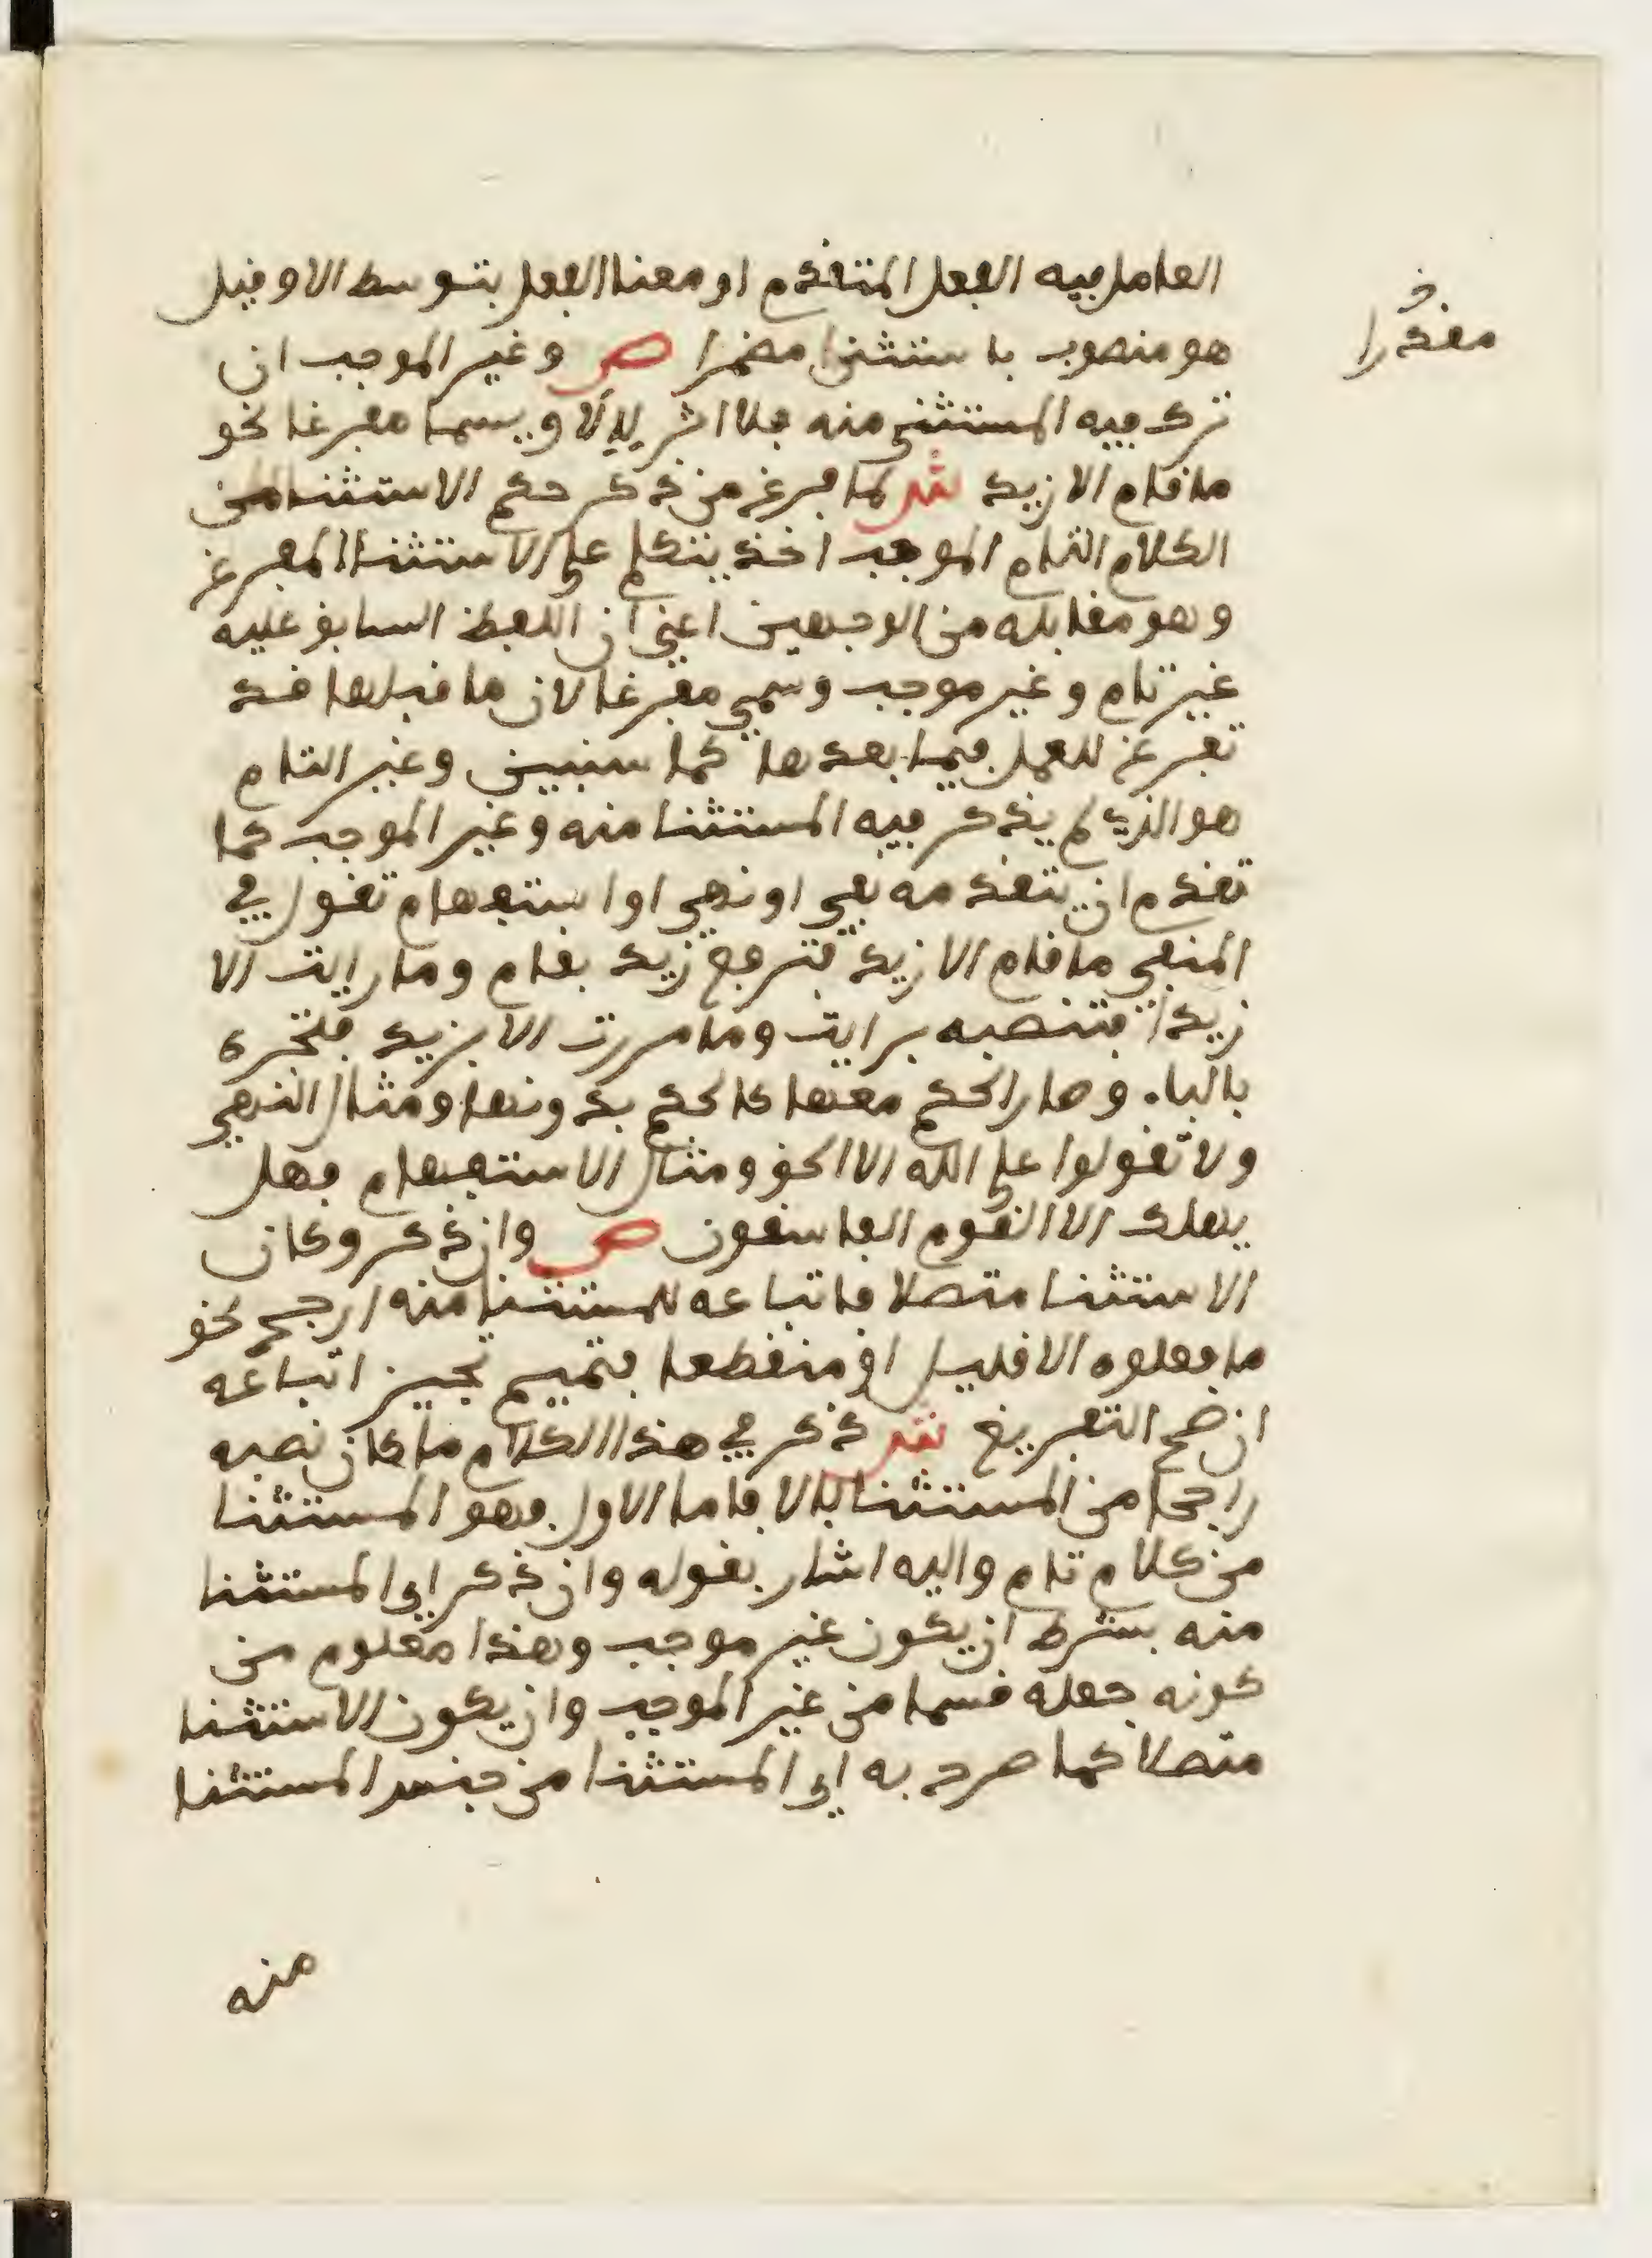 العامل فيه الفعل المتقدم او معنا الفعل بتوسط الا وقيل
هو منصوب باستثنى مضمرا ص وغير الموجب ان
ترك فيه المستثنى منه فلا اثر لإلا ويسما مفرغا نحو
ما قام الا زيد ش لما فرغ من ذكر حكم الاستثنا من
الكلام التام الموجب اخذ يتكلم على الاستثنا المفرغ
وهو مقابله من الوجهين اعني ان اللفظ السابق عليه
غير تام وغير موجب وسمي مفرغا لان ما قبلها قد
تفرغ للعمل فيما بعدها كما سنبين وغير التام
هو الذي لم يذكر فيه المستثنا منه وغير الموجب كما
تقدم ان يتقدمه نفي او نهي او استفهام تقول في
المنفي ما قام الا زيد فترفع زيد بقام وما رايت الا
زيدا فتنصبه برايت وما مررت الا بزيد فتخره
بالباء وصار الحكم معها كالحكم بدونها ومثال النهي
ولا تقولوا على الله الا الحق ومثال الاستفهام فهل
يهلك الا القوم الفاسقون ص وان ذكر وكان
الاستثنا متصلا فاتباعه للمستثنا منه ارجح نحو
ما فعلوه الا قليل او منقطعا فتميم تجيز اتباعه
ان صح التفريغ ش ذكر في هذا الكلام ما كان نصبه
راجحا من المستثنا بالا فاما الاول فهو المستثنا
من كلام تام واليه اشار بقوله وان ذكر اي المستثنا
منه بشرط ان يكون غير موجب وهذا معلوم من
كونه جعله قسما من غير الموجب وان يكون الاستثنا
متصلا كما صرح به اي المستثنا من جنس المستثنا
منه
مقدرا